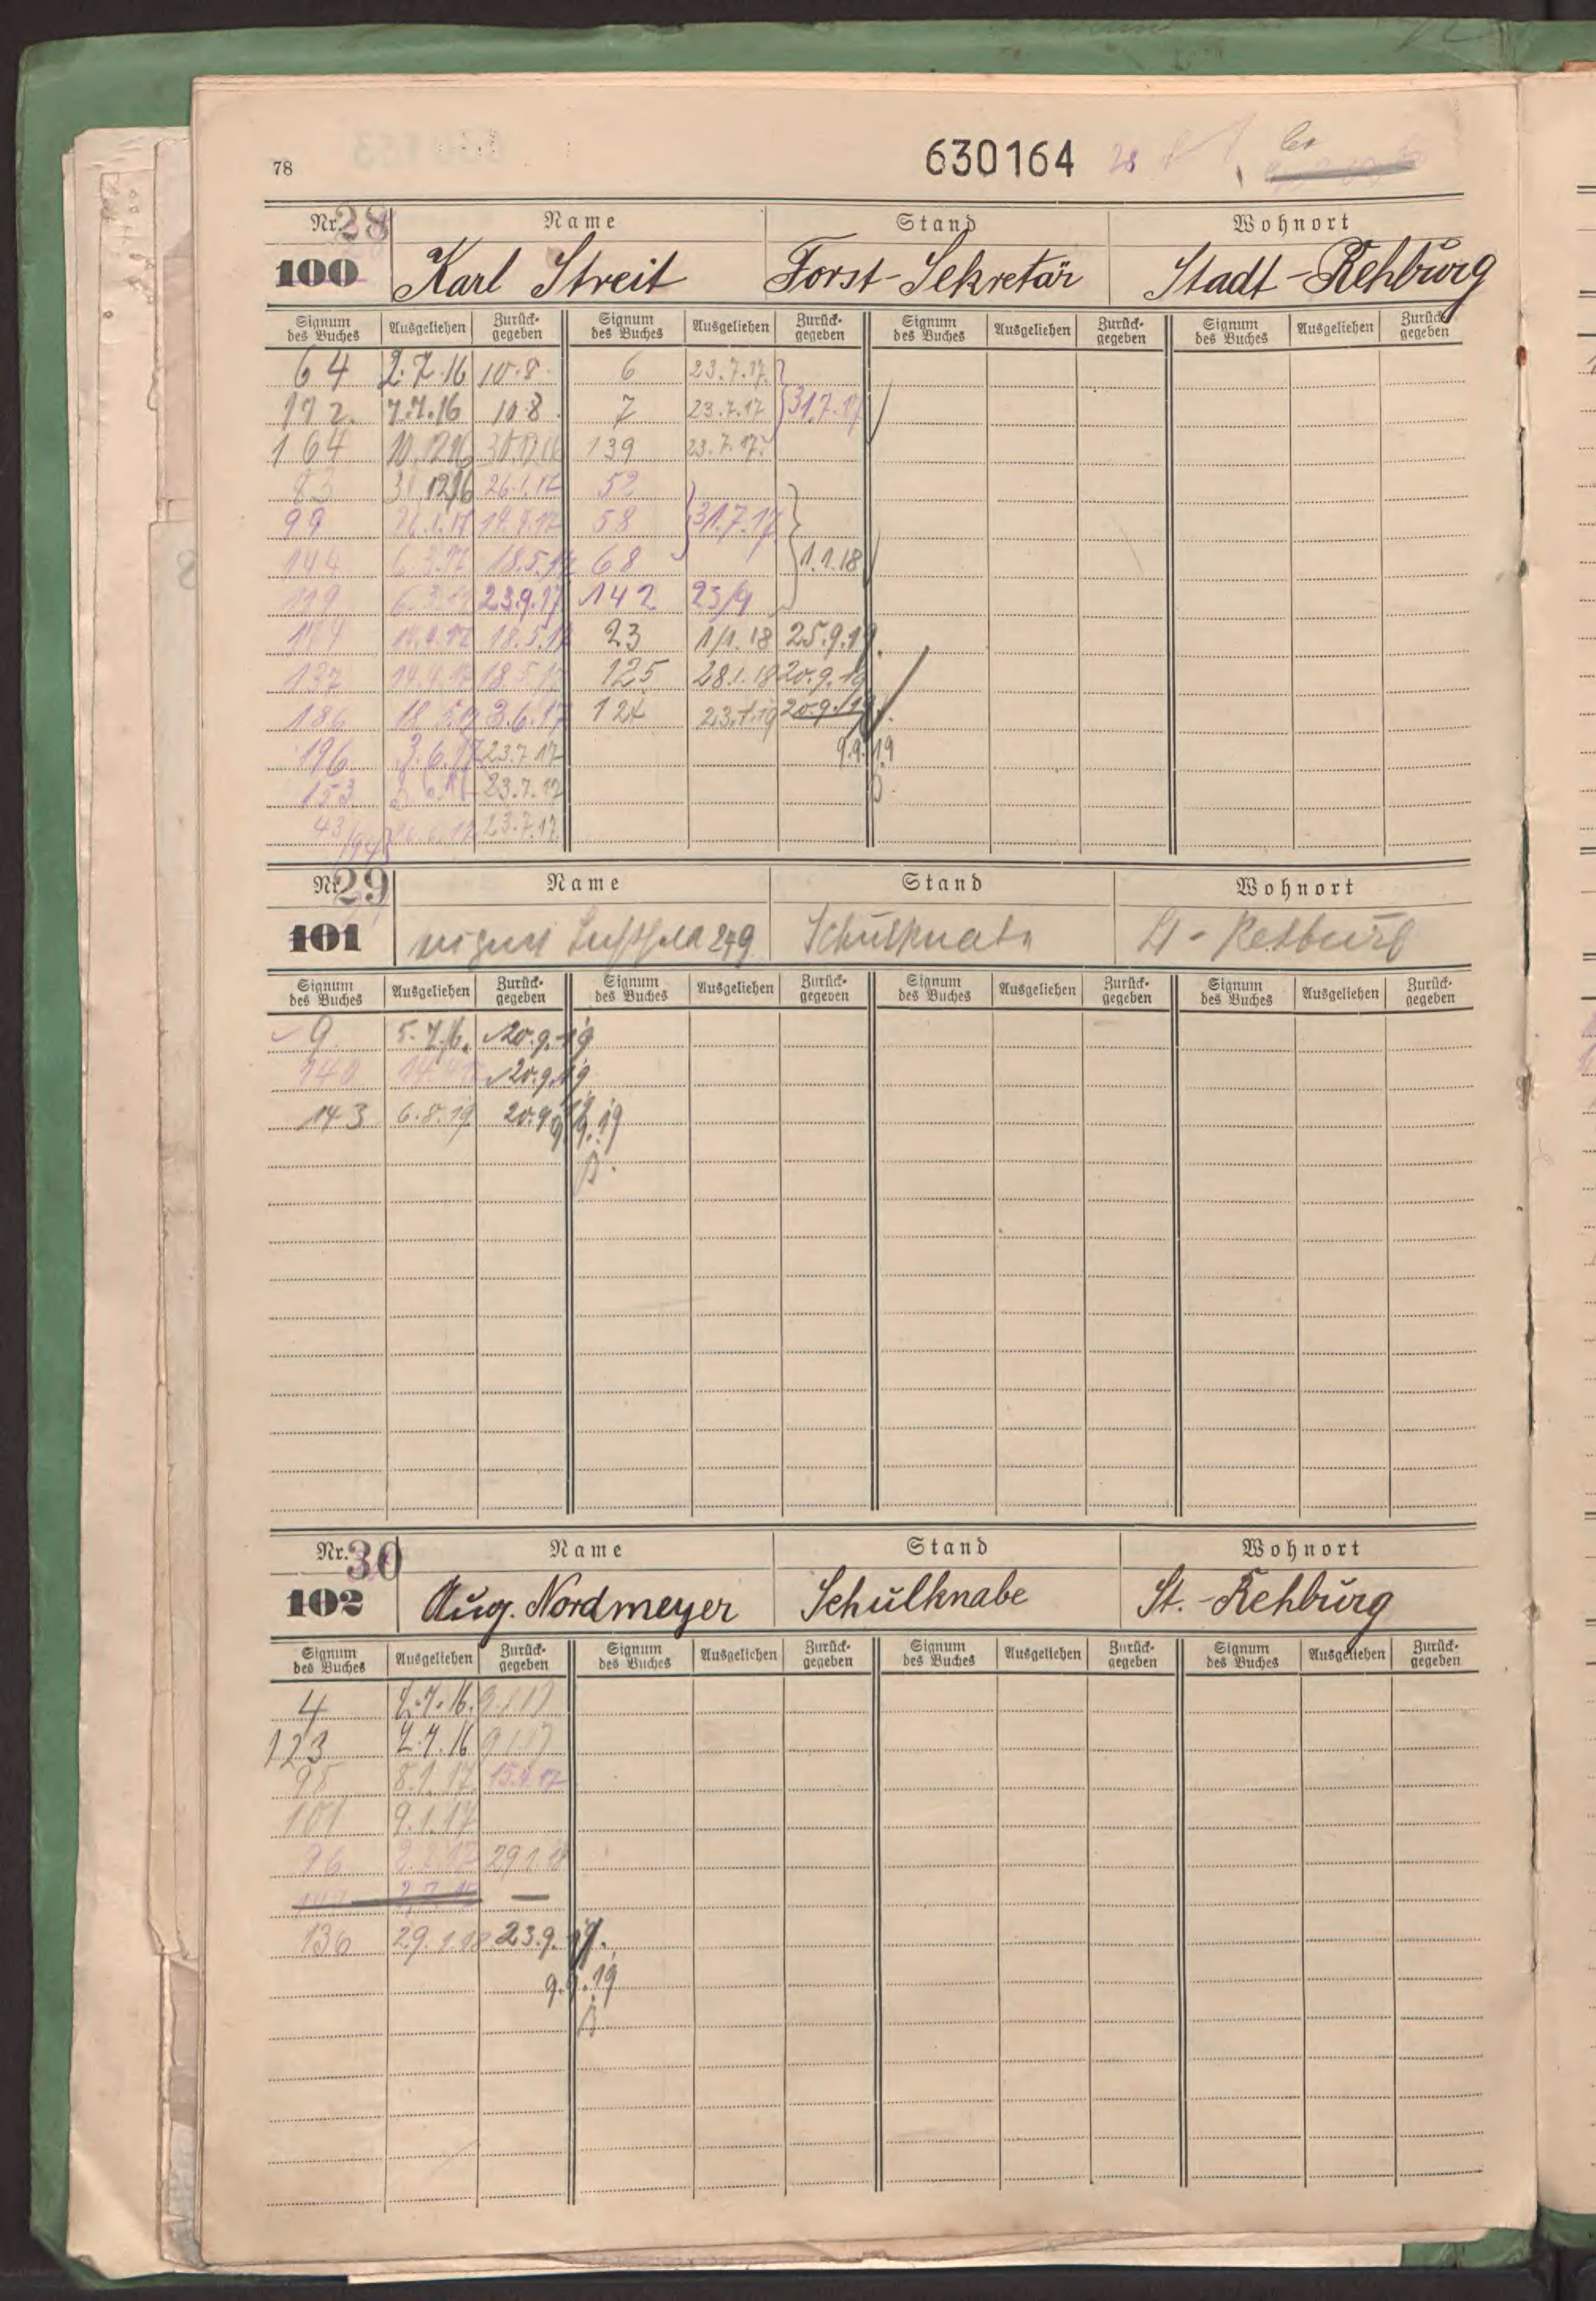 78 630164 28
Nr. 28 Name Stand Wohnort
100 Karl Streit Forst-Sekretär Stadt-Rehburg
Signum des Buches Ausgeliehen Zurück-gegeben Signum des Buches Ausgeliehen Zurück-gegeben Signum des Buches Ausgeliehen Zurück-gegeben Signum des Buches Ausgeliehen Zurück-gegeben
64 2.7.16 10.8. 6 23.7.17.
172. 7.7.16 10.8. 7 23.7.17 31.7.17
164 10.12.16 30.12.16 139 23.7.17.
83 31.12.16 26.1.17 52
99 26.1.17 14.4.17 58 31.7.17
144 6.3.17 18.5.17 68 1.1.18
119 6.3.17 23.9.17 142 23/9
14.4.17 18.5.17 23 1/1.18 25.9.19.
137 14.4.17 18.5.17 125 28.1.18 20.9.19
186 18.5.17 3.6.17 124 23.1.19 20.9.19.
196 3.6.17 23.7.17 9.9.19
153 23.7.17
43/194 26.6.17 23.7.17.
Nr. 29 Name Stand Wohnort
101 Schulknabe St-Rehburg
Signum des Buches Ausgeliehen Zurück-gegeben Signum des Buches Ausgeliehen Zurück-gegeben Signum des Buches Ausgeliehen Zurück-gegeben Signum des Buches Ausgeliehen Zurück-gegeben
9 5.7.16. 20.9.19
140 20.9.19
143 6.8.19 20.9.19
9.9.19
Nr. 30 Name Stand Wohnort
102 Aug. Nordmeyer Schulknabe St.-Rehburg
Signum des Buches Ausgeliehen Zurück-gegeben Signum des Buches Ausgeliehen Zurück-gegeben Signum des Buches Ausgeliehen Zurück-gegeben Signum des Buches Ausgeliehen Zurück-gegeben
4 2.7.16. 9.1.17
123 2.7.16 9.1.17
98 8.1.17. 15.4.17
101 9.1.17
96 29.1.18
—
136 29.1.18 23.9.19.
9.9.19